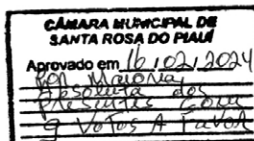 CÂMARA MUNICIPAL DE
SANTA ROSA DO PIAUÍ
Aprovado em 16/02/2024
Por Maioria
Absoluta dos
Presentes com
9 Votos A Favor